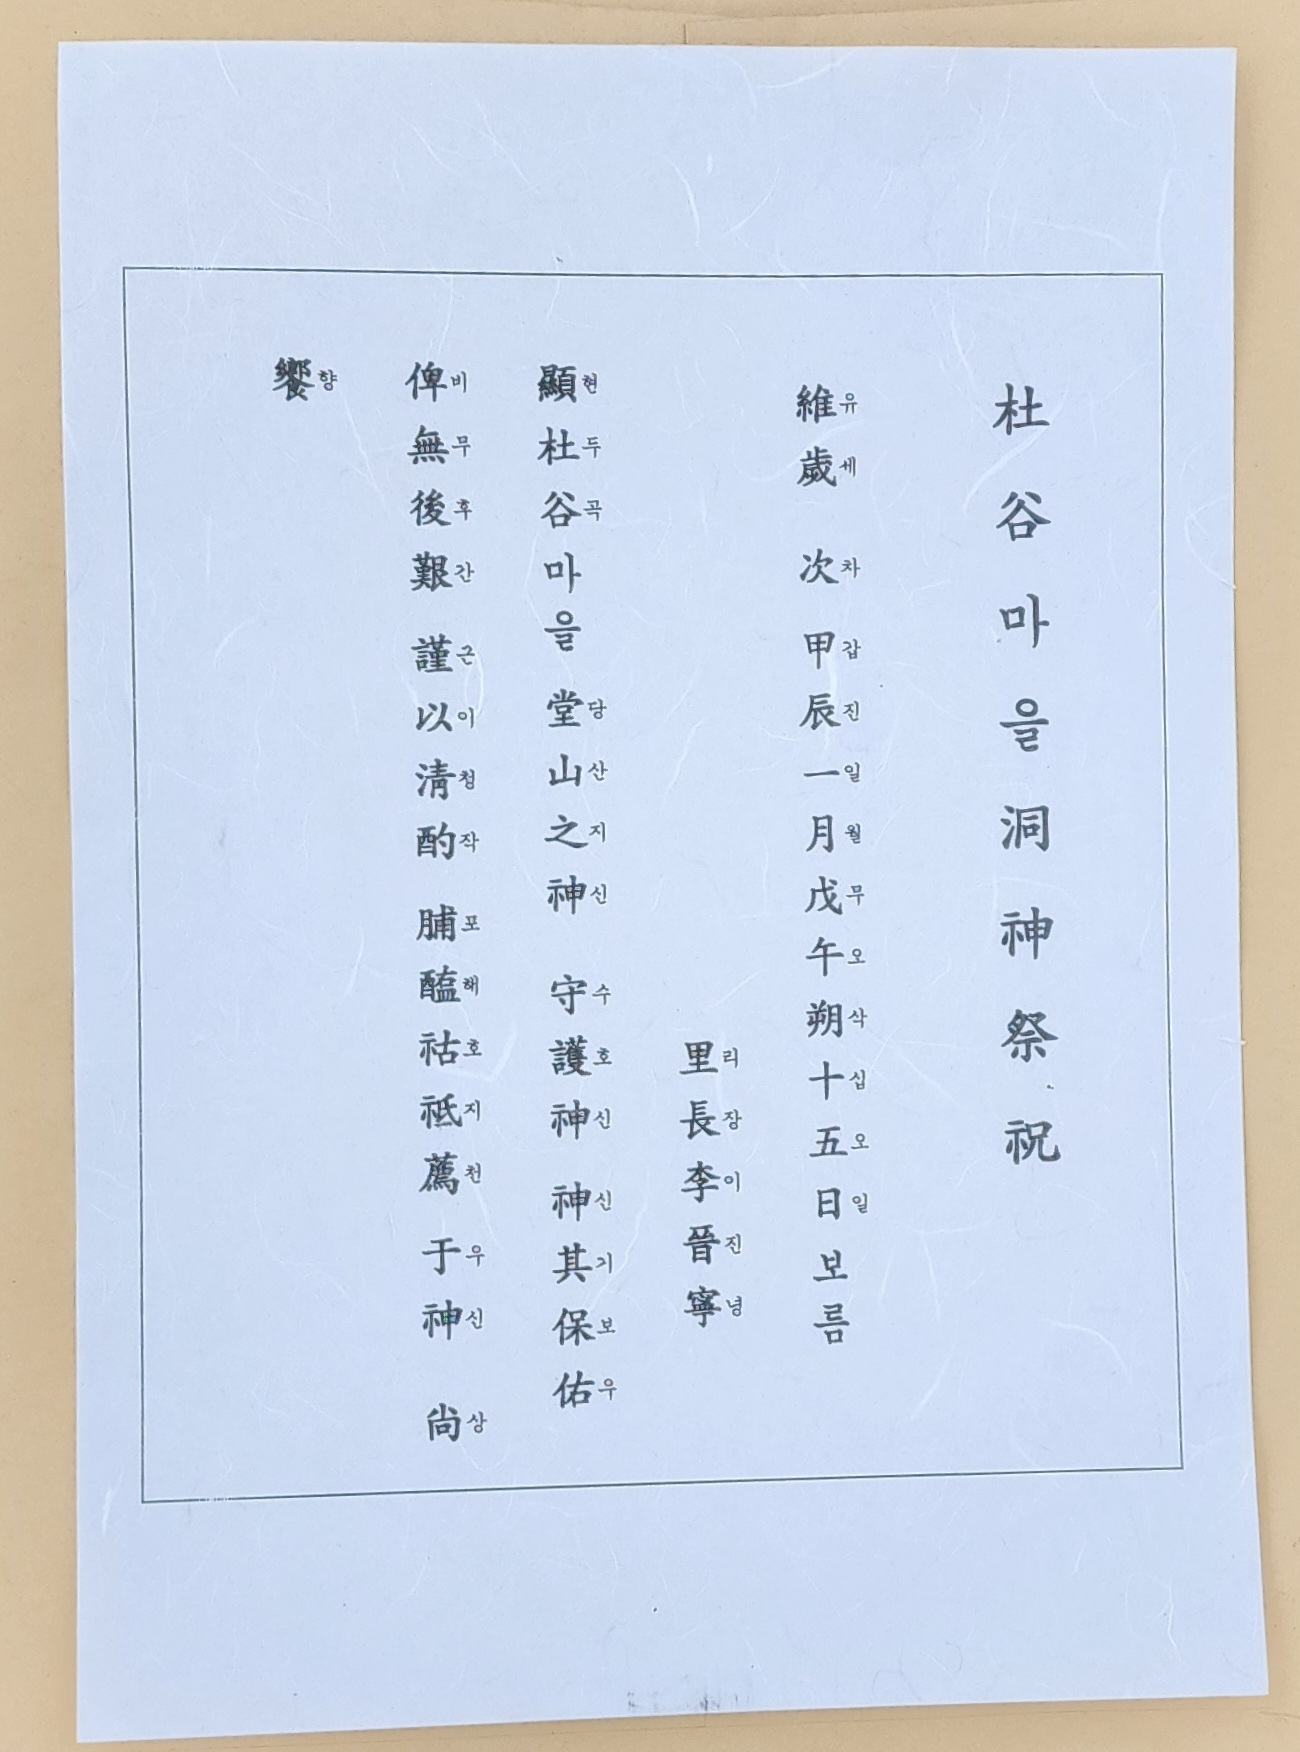 杜谷마을洞神祭祝
維유歲세 次차 甲갑辰진一일月월戊무午오朔삭十십五오日일보름
里리長장李이晉진寧녕
顯현杜두谷곡마을 堂당山산之지神신 守수護호神신 神신其기保보佑우
俾비無무後후艱간 謹근以이淸청酌작 脯포醢해祜호祗지薦천 于우神신 尙상
饗향